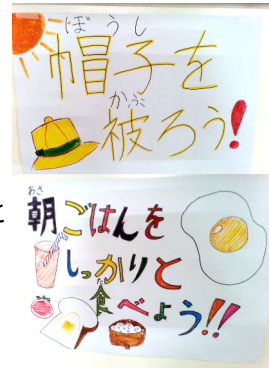 ぼうし
帽子を
かぶ
被ろう!
あさ
朝ごはんを
しっかりと
た
食べよう!!
と